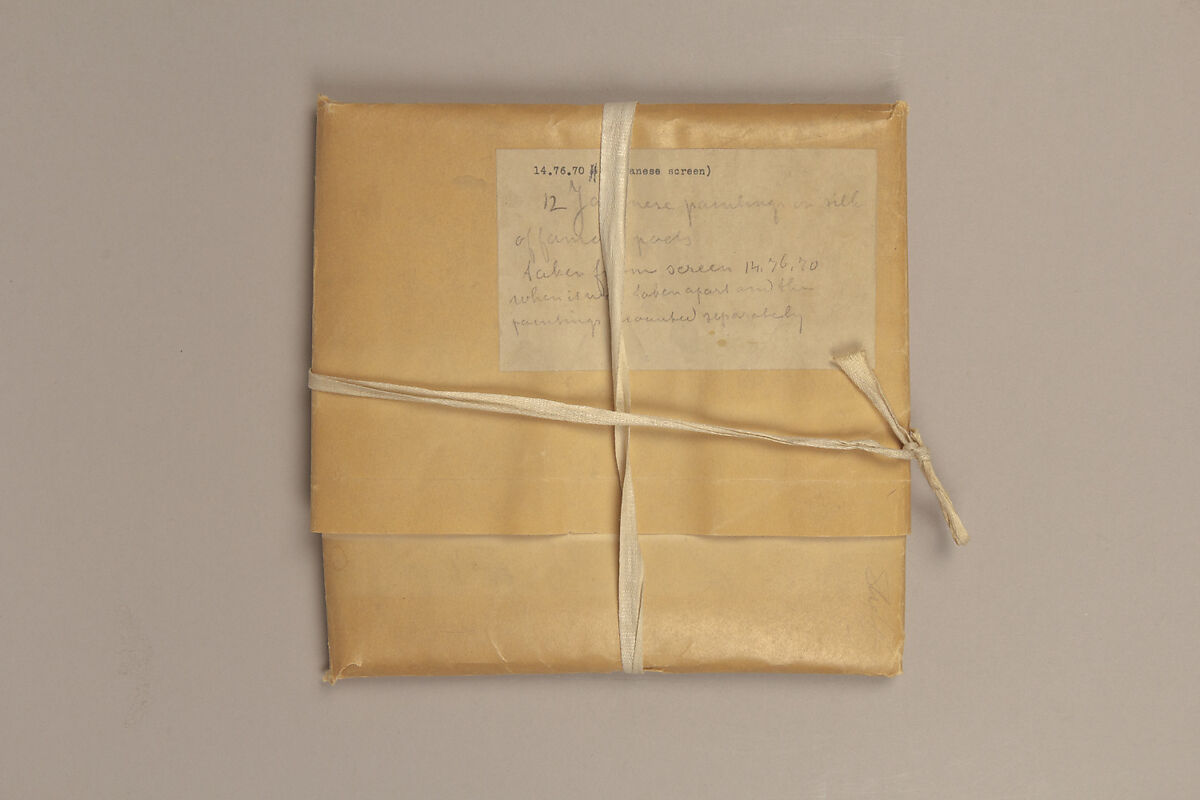 14.76.70 anese screen)
12 Ja nese paintings on silk
of famo poets
taken from screen 14.76.70
when it was taken apart and the
paintings mounted separately